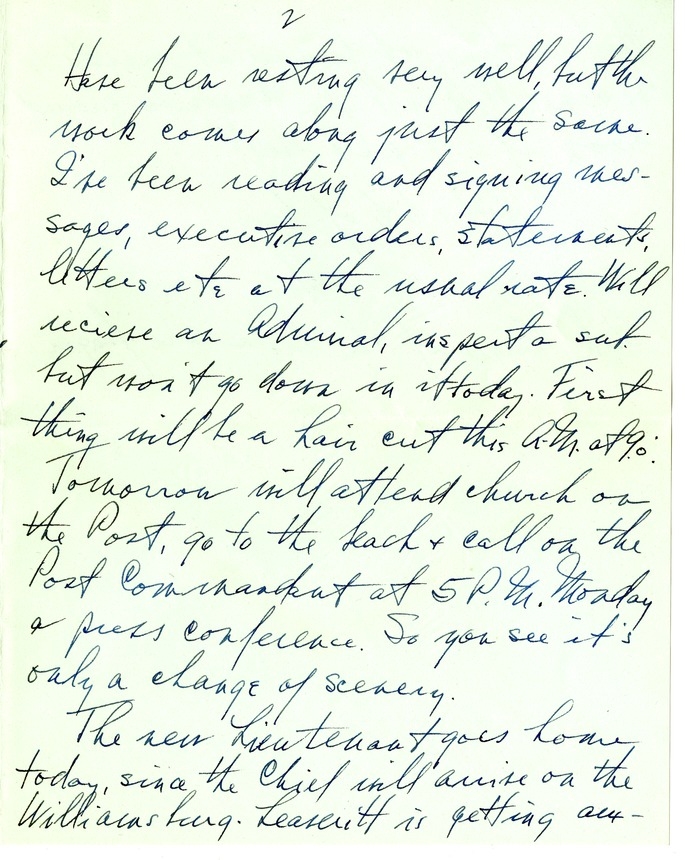 2
Have been resting very well, but the
work comes along just the same.
I've been reading and signing mes-
sages, executive orders, statements,
letters etc at the usual rate. Will
recieve an Admiral, inspect a sub
but won't go down in it today. First
thing will be a hair cut this A.M. at 9:
Tomorrow will attend church on
the Post, go to the beach & call on the
Post Commandant at 5 P.M. Monday
a press conference. So you see it's
only a change of scenery.
The new Lieutenant goes home
today, since the Chief will arrive on the
Williamsburg. Leaveritt is getting anx-